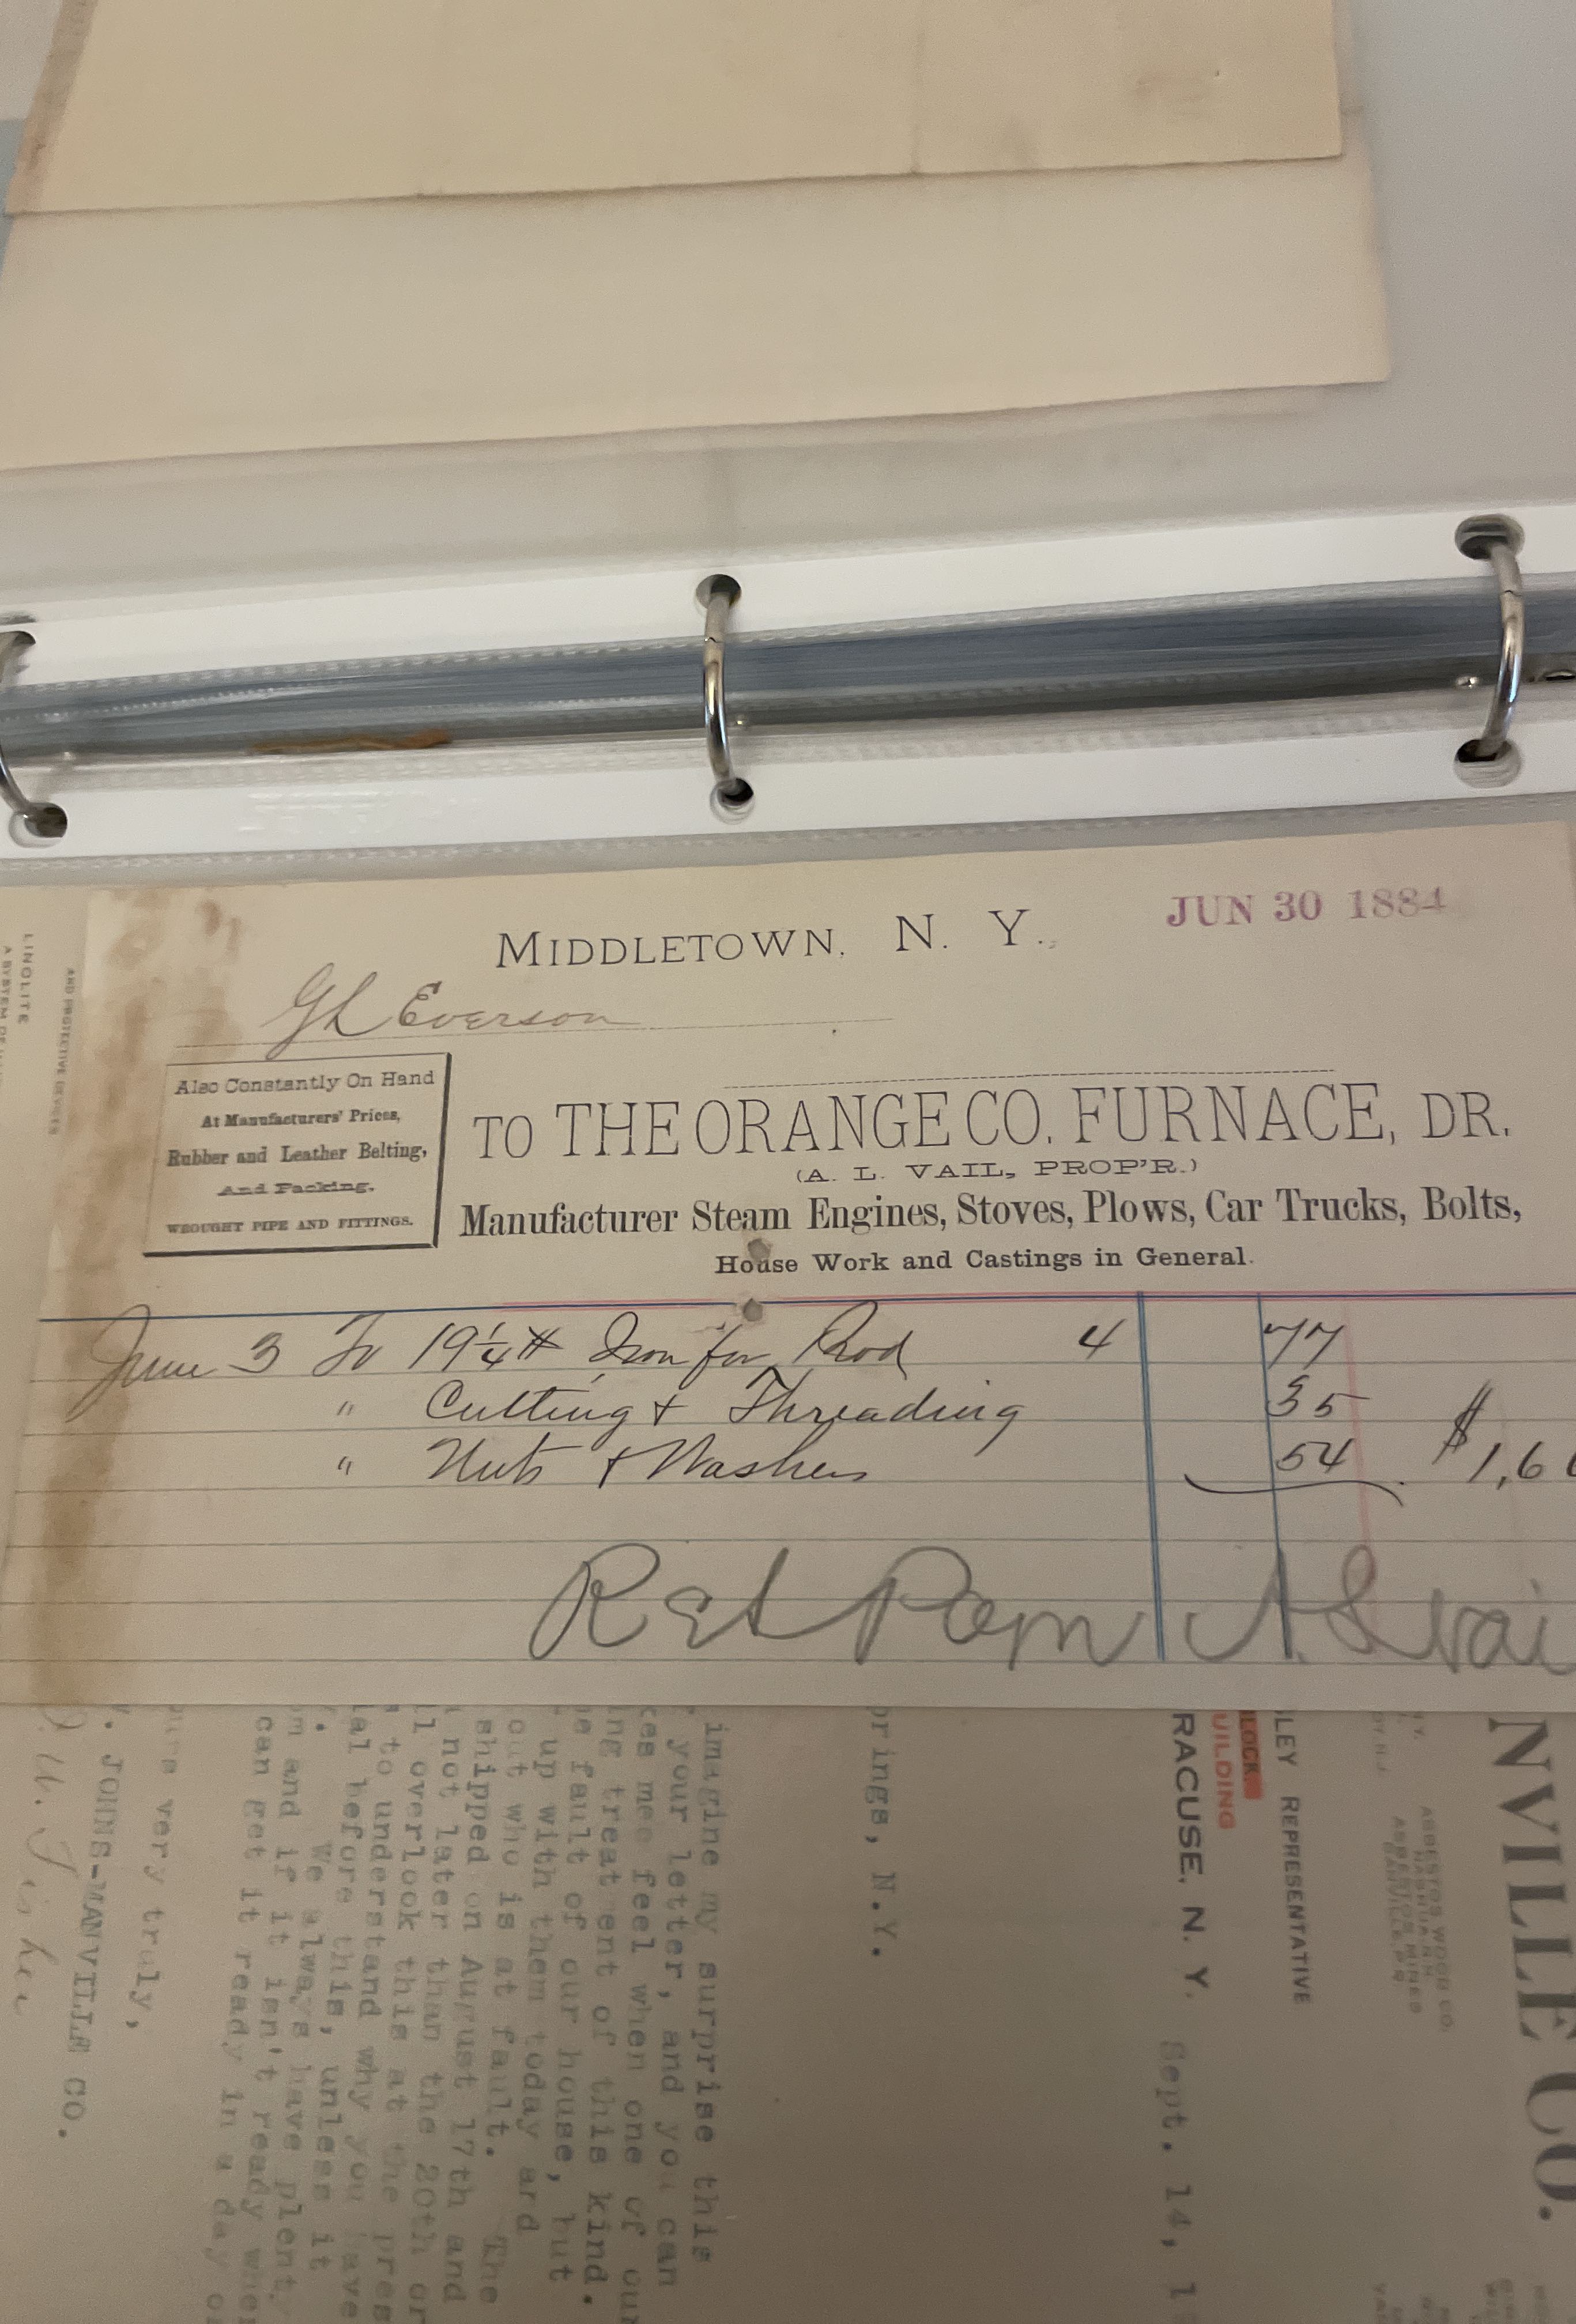 MIDDLETOWN, N. Y.,
JUN 30 1884
G L Everson
Also Constantly On Hand
At Manufacturers' Prices,
Rubber and Leather Belting,
And Packing.
WROUGHT PIPE AND FITTINGS.
TO THE ORANGE CO. FURNACE, DR.
(A. L. VAIL, PROP'R.)
Manufacturer Steam Engines, Stoves, Plows, Car Trucks, Bolts,
House Work and Castings in General.
June 3 To 19¼ # Iron for Rod 4 77
" Cutting & Threading 35
" Nuts & Washers 54 $ 1,6
Rct Paym A L Vai
LINOLITE
AND PROTECTIVE DEVICES
NVILLE CO.
ASBESTOS WOOD CO.
NASHUA N.H.
LEY REPRESENTATIVE
LOCK
UILDING
RACUSE, N. Y. Sept. 14, 1
rings, N.Y.
imagine my surprise this
your letter, and you can
kes me feel when one of our
ng treatment of this kind.
e fault of our house, but
up with them today and
out who is at fault. The
shipped on August 17th and
not later than the 20th or
ll overlook this at the pres
to understand why you have
al before this, unless it
We always have plenty
m and if it isn't ready when
can get it ready in a day or
very truly,
. JOHNS-MANVILLE CO.